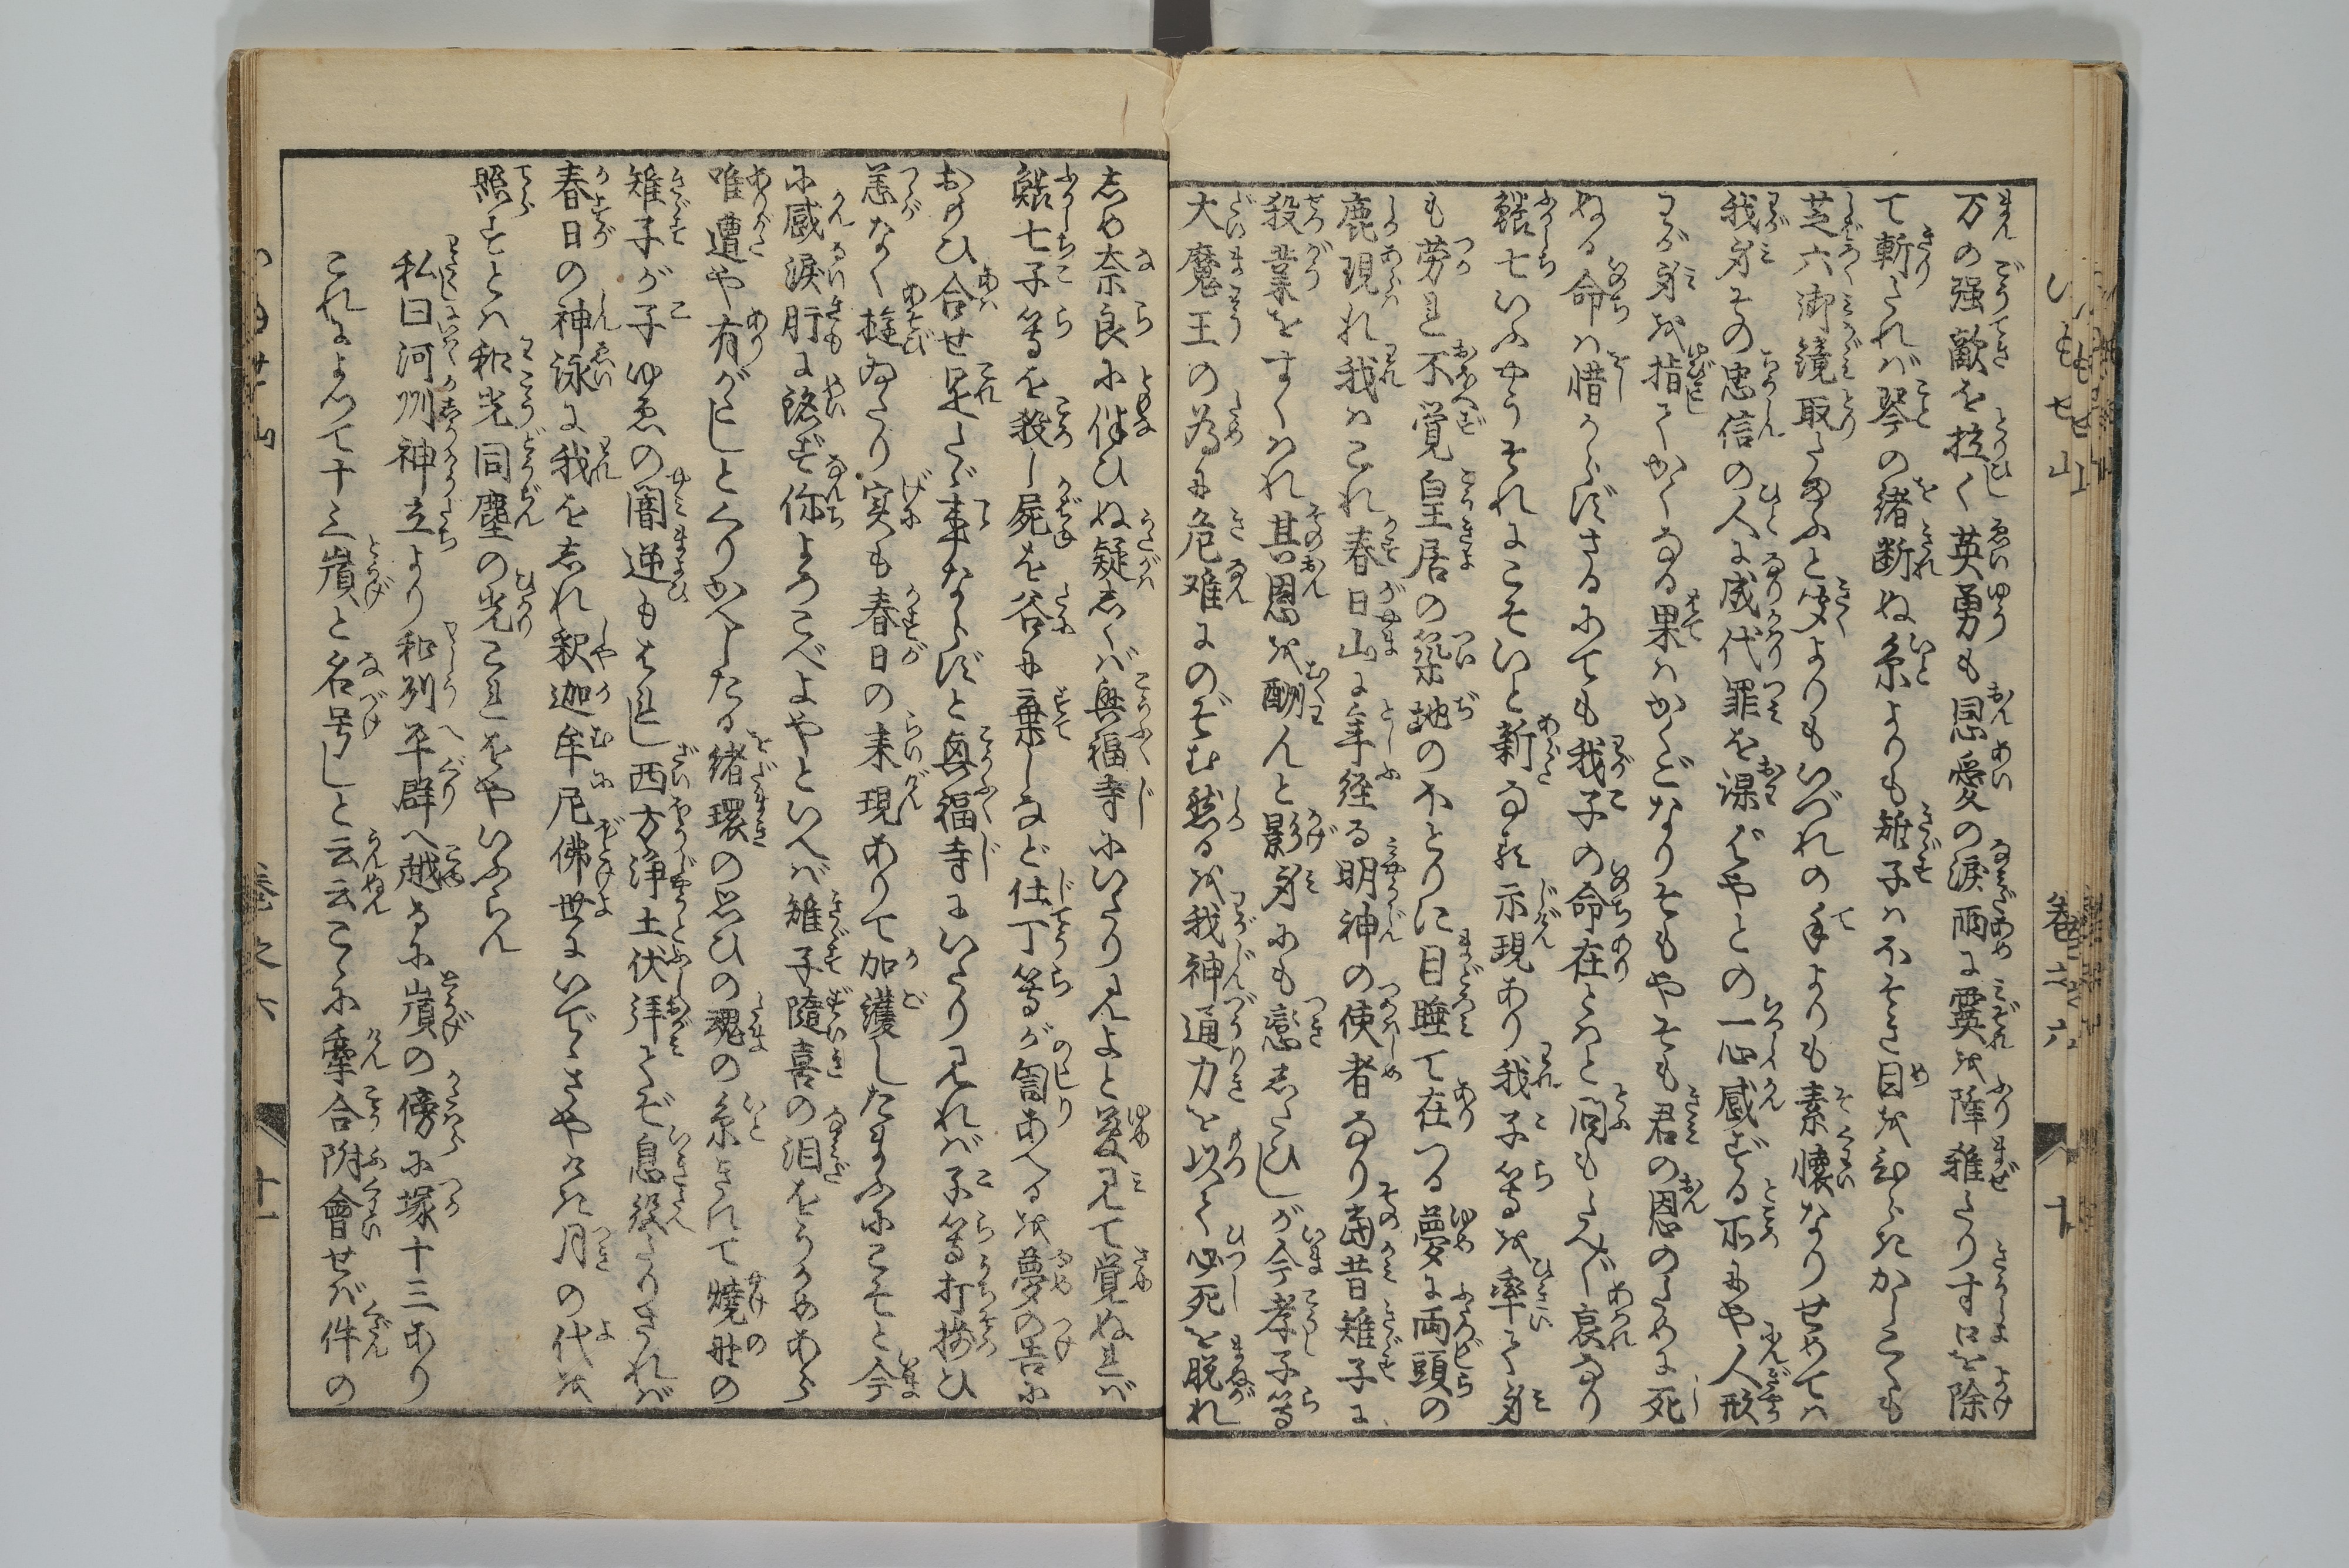 万の強敵を拉ぐ英勇も恩愛の涙雨に霙を降雑たりすはを除
て斬されば琴の緒断ぬ糸よりも雉子は不そき目を忍らきかしこくも
芝六御鏡取たまふと聞よりもいづれの手よりも素懐なりせめては
我身その忠信の人に成代罪を課ばやとの一心感ずる所にや人形
わが身を指てかくなる果はかくごなりそもやそも君の恩のために死
ぬる命は惜からずさるにても我子の命在とはと問もたへず哀なり
鱶七いふやうそれにこそいと新なる示現あり我子等を率て身
も労れ不覚皇居の築地のほとりに目睡て在つる夢に両頭の
鹿現れ我はこれ春日山に年経る明神の使者なり當昔雉子に
殺業をすくはれ其恩を酬んと影身にも戀したひしが今孝子等
大魔王の為に危難にのぞむ然るを我神通力を以て必死を脱れ
しめ奈良に伴ひぬ疑しくば興福寺にいたり見よと夢見て覚ぬれば
鱶七子等を殺し屍を谷に棄しなど仕丁等が訇あへるを夢の告に
おもひ合せ是たゞ事ならずと興福寺にいたり見れば子等打揃ひ
恙なく遊ゐたり実も春日の来現ありて加護したまふにこそと今
に感涙肝に銘ず你よろこべよやといへば雉子隨喜の泪をうかめあら
唯遭や有がたしとくりかへしたる緒環の思ひの魂の糸きれて焼野の
雉子が子ゆゑの闇迷もはれし西方浄土伏拝てぞ息絶たりされば
春日の神詠に我をしれ釈迦牟尼佛世にいでゝさやけき月の代を
照すとは和光同塵の光これをやいふらん
私曰河刕神立より和列平群へ越るに嶺の傍に塚十三あり
これによつて十三嶺と名号しと云云こゝに牽合附會せば件の
いもせ山
巻之六
十
巻之六
十一